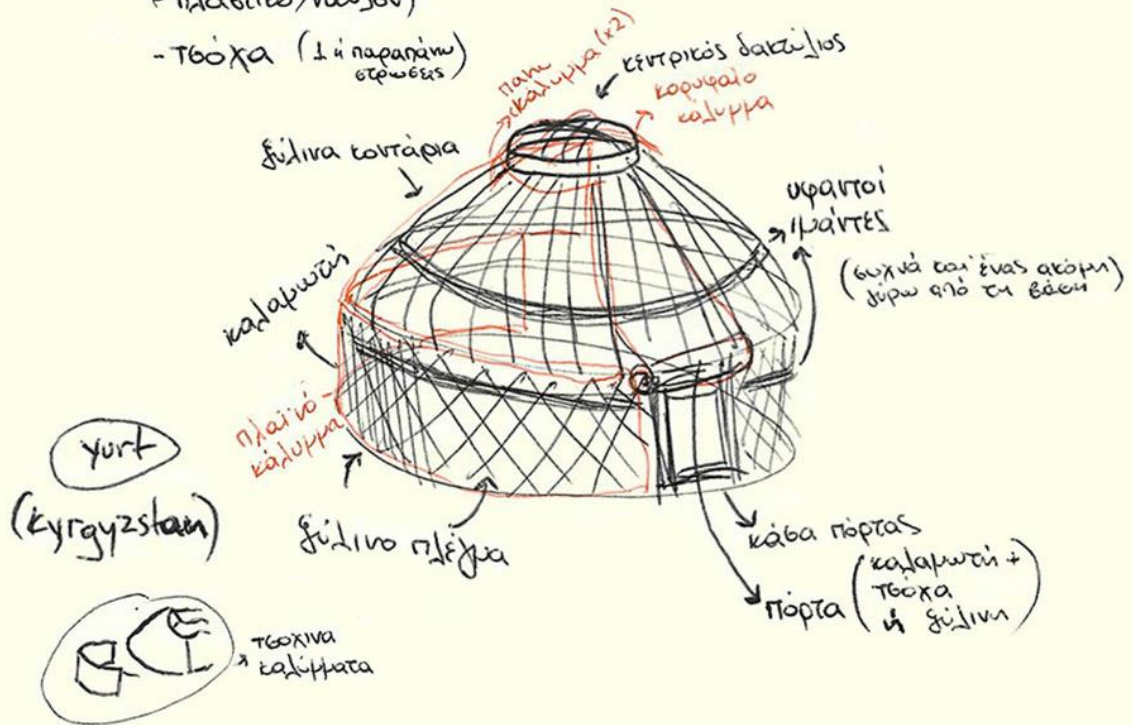 - πλαστικό/νάυλον)
- τσόχα (1 ή παραπάνω
στρώσεις)
πάνω
κάλυμμα (x2)
κεντρικός δακτύλιος
κορυφαίο
κάλυμμα
ξύλινα κοντάρια
υφαντοί
ιμάντες
(συχνά και ένας ακόμη
γύρω από τη βάση)
καλαμωτή
πλαϊνό-
κάλυμμα
yurt
(kyrgyzstan)
ξύλινο πλέγμα
κάσα πόρτας
πόρτα (καλαμωτή +
τσόχα
ή ξύλινη)
τσόχινα
καλύμματα